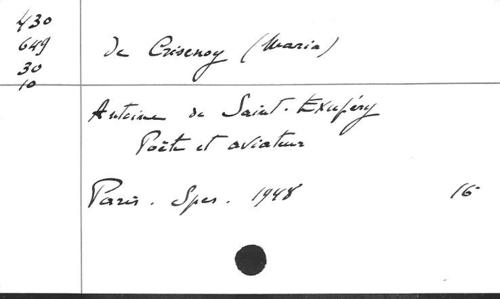 430
649
30
10
de Crisenoy (Maria)
Antoine de Saint-Exupéry
Poète et aviateur
Paris. Spes. 1948 16